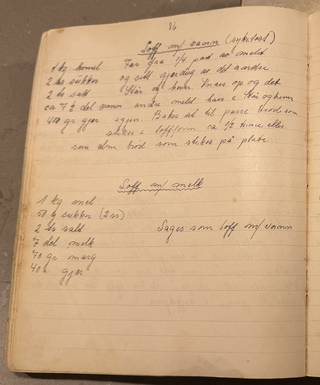 Loff m/ vann (sykeloff)
1 kg hvmel
2 ts sukker
2 ts salt
ca 7½ del vann
400 gr gjær
Tar fra 1/4 pad av melet
og sett gjærdeig av det andre
op og det
andre melet has i
igjen. Bakes ut til passe brød som
stekes i loffform ca ½ time eller
som som brød som stekes på plate.
Loff m/ melk
1 kg mel
50 g sukker (2 ss)
2 ts salt
7 del melk
70 gr marg
40 gr gjær
Lages som loff m/ vann